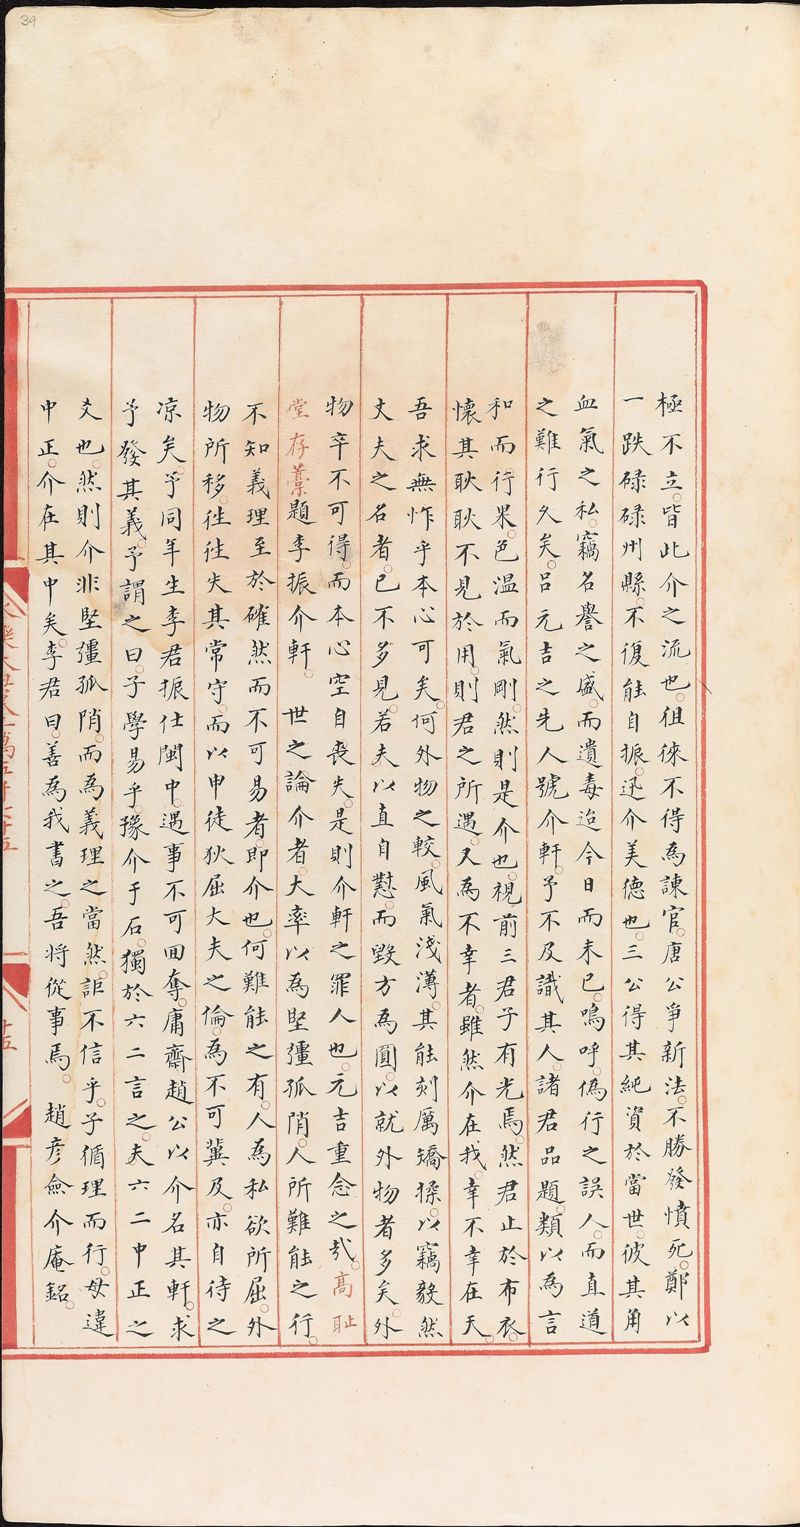 極不立。皆此介之流也。徂徠不得為諫官。唐公爭新法。不勝發憤死。鄭以
一跌碌碌州縣。不復能自振。迅介美德也。三公得其純資於當世。彼其角
血氣之私。竊名譽之盛。而遺毒迨今日而未已。嗚呼。偽行之誤人。而直道
之難行久矣。呂元吉之先人號介軒。予不及識其人。諸君品題。類以為言
和而行果。色溫而氣剛。然則是介也。視前三君子有光焉。然君止於布衣。
懷其耿耿不見於用。則君之所遇。又為不幸者。雖然介在我。幸不幸在天。
吾求無怍乎本心可矣。何外物之較。風氣淺薄。其能刻厲矯揉。以竊毅然
丈夫之名者。已不多見。若夫以直自懟。而毀方為圓。以就外物者多矣。外
物卒不可得。而本心空自喪失。是則介軒之罪人也。元吉重念之哉。高恥
堂存藁題李振介軒。 世之論介者。大率以為堅彊孤陗。人所難能之行。
不知義理至於確然而不可易者。即介也。何難能之有。人為私欲所屈。外
物所移。往往失其常守。而以申徒狄屈大夫之倫。為不可冀及。亦自待之
凉矣。予同年生李君振仕閩中。遇事不可回奪。庸齋趙公以介名其軒。求
予發其義。予謂之曰。子學易乎。豫介于石。獨於六二言之。夫六二中正之
爻也。然則介非堅彊孤陗。而為義理之當然。詎不信乎。子循理而行。毋違
中正。介在其中矣。李君曰。善為我書之。吾將從事焉。 趙彥僉介庵銘。
39